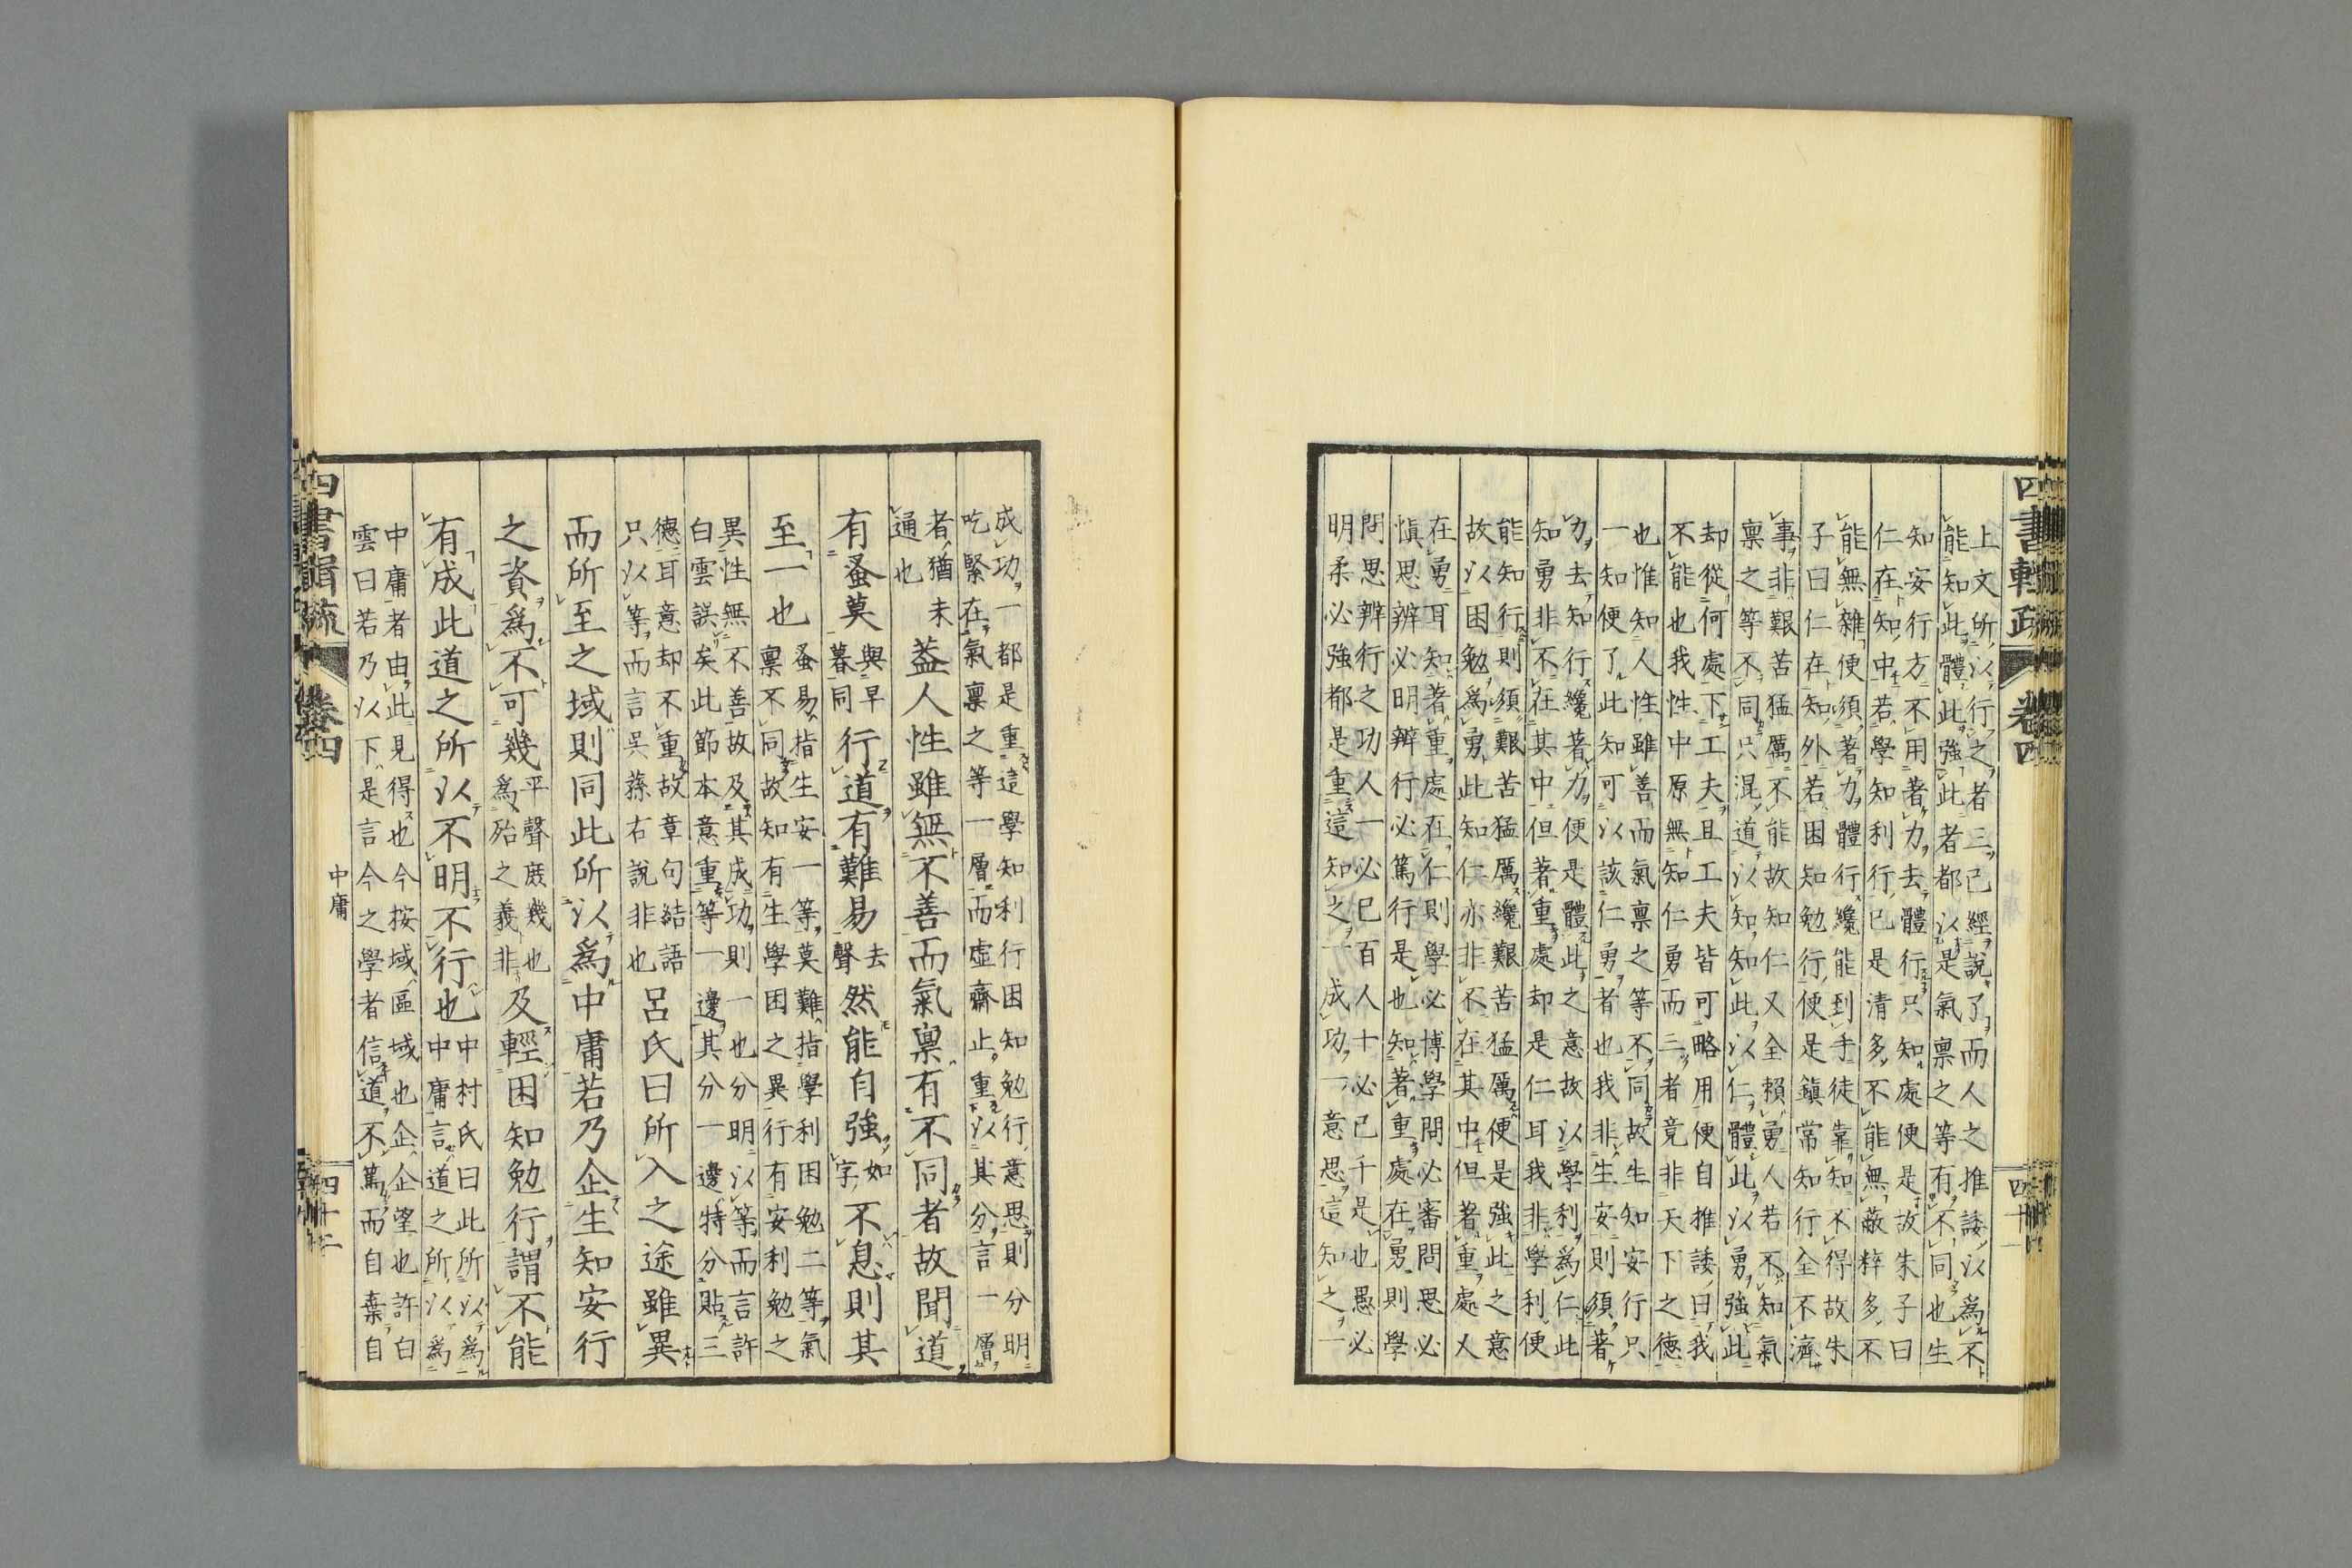 四書輯疏 卷四 四十一
上文所以行之者三已經說了而人之推諉以爲不
能知此體此強此者都以是氣禀之等有不同也生
知安行方不用著力去體行只知處便是故朱子曰
仁在知中若學知利行已是清多不能無蔽粹多不
能無雜便須著力體行纔能到手徒靠知不得故朱
子曰仁在知外若困知勉行便是鎭常知行全不濟
事非艱苦猛厲不能故知仁又全賴勇人若不知氣
禀之等不同只混道以知知此以仁體此以勇強此
却從何處下工夫且工夫皆可略用便自推諉曰我
不能也我性中原無知仁勇而三者竟非天下之德
也惟知人性雖善而氣禀之等不同故生知安行只
一知便了此知可以該仁勇者也我非生安則須著
力去知行纔著力便是體此之意故以學利爲仁此
知勇非不在其中但著重處却是仁耳我非學利便
能知行則須艱苦猛厲纔艱苦猛厲便是強此之意
故以困勉爲勇此知仁亦非不在其中但著重處乂
在勇耳知著重處在仁則學必博學問必審問思必
愼思辨必明辨行必篤行是也知著重處在勇則學
問思辨行之功人一必己百人十必己千是也愚必
明柔必強都是重這知之一成功一意思這知之一
成功一都是重這學知利行困知勉行意思則分明
吃緊在氣禀之等一層而虛齋止重以其分言一層
者猶未
通也
蓋人性雖無不善而氣禀有不同者故聞道
有蚤莫
與早
暮同
行道有難易
去
聲
然能自強
如
字
不息則其
至一也
蚤易指生安一等莫難指學利困勉二等氣
禀不同故知有生學困之異行有安利勉之
異性無不善故及其成功則一也分明以等而言許
白雲誤矣此節本意重等一邊其分一邊特分貼三
德耳意却不重故章句結語
只以等而言吳蓀右說非也
呂氏曰所入之途雖異
而所至之域則同此所以爲中庸若乃企生知安行
之資爲不可幾
平聲庶幾也
爲殆之義非
及輕困知勉行謂不能
有成此道之所以不明不行也
中村氏曰此所以爲
中庸言道之所以爲
中庸者由此見得也今按域區域也企企望也許白
雲曰若乃以下是言今之學者信道不篤而自棄自
四書輯疏 卷四 中庸 四十二